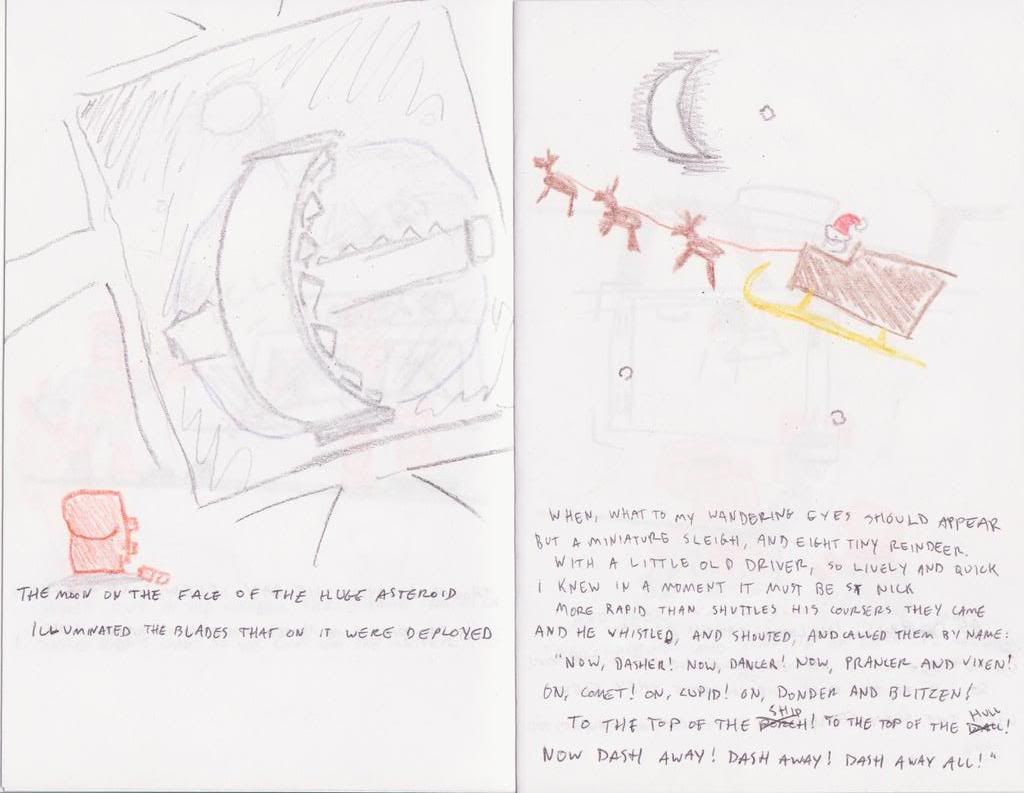 THE MOON ON THE FACE OF THE HUGE ASTEROID
ILLUMINATED THE BLADES THAT ON IT WERE DEPLOYED
WHEN, WHAT TO MY WANDERING EYES SHOULD APPEAR
BUT A MINIATURE SLEIGH, AND EIGHT TINY REINDEER.
WITH A LITTLE OLD DRIVER, SO LIVELY AND QUICK
I KNEW IN A MOMENT IT MUST BE ST NICK
MORE RAPID THAN SHUTTLES HIS COURSERS THEY CAME
AND HE WHISTLED, AND SHOUTED, AND CALLED THEM BY NAME:
"NOW, DASHER! NOW, DANCER! NOW, PRANCER AND VIXEN!
ON, COMET! ON, CUPID! ON, DONDER AND BLITZEN!
TO THE TOP OF THE SHIP! TO THE TOP OF THE HULL!
NOW DASH AWAY! DASH AWAY! DASH AWAY ALL!"